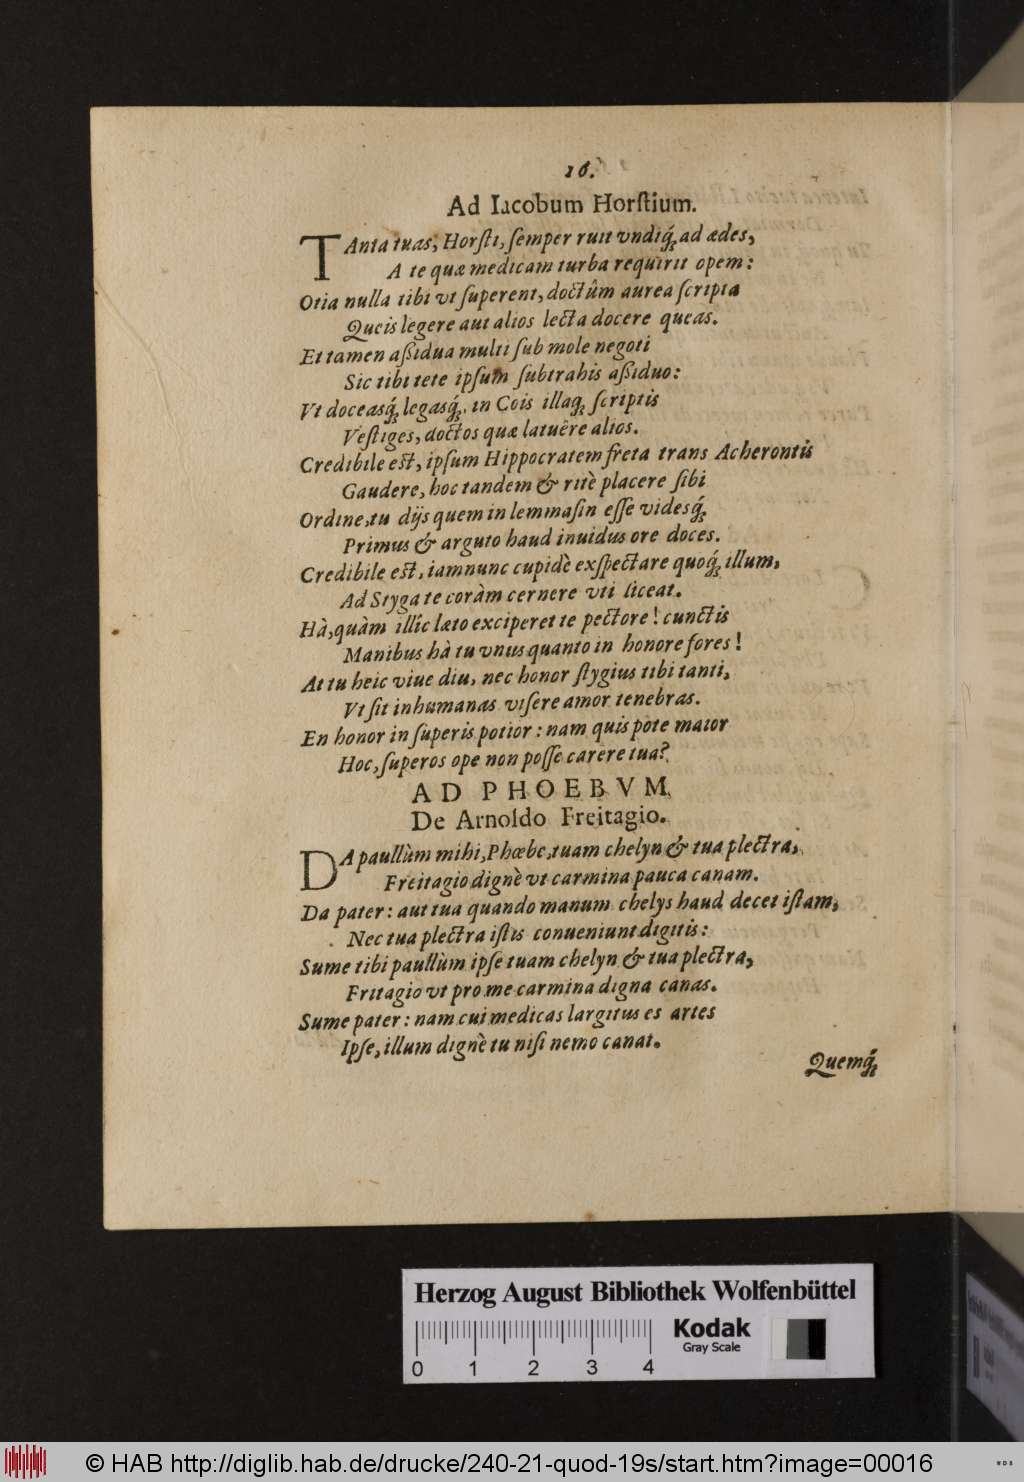 16.
Ad Iacobum Horſtium.
TAnta tuas, Horſti, ſemper ruit vndiq́ꝫ ad ædes,
A te quæ medicam turba requirit opem:
Otia nulla tibi vt ſuperent, doctûm aurea ſcripta
Queis legere aut alios lecta docere queas.
Et tamen aßidua multi ſub mole negoti
Sic tibi tete ipſum ſubtrahis aßiduo:
Vt doceasq́ꝫ legasq́ꝫ, in Cois illaqꝫ ſcriptis
Veſtiges, doctos quæ latuêre alios.
Credibile est, ipſum Hippocratem freta trans Acherontis
Gaudere, hoc tandem & ritè placere ſibi
Ordine, tu dijs quem in lemmaſin eſſe videsq́ꝫ
Primus & arguto haud inuidus ore doces.
Credibile est, iamnunc cupidè exſpectare quoq́ꝫ illum,
Ad Styga te coràm cernere vti liceat.
Hà, quàm illîc læto exciperet te pectore! cunctis
Manibus hà tu vnus quanto in honore fores!
At tu heic viue diu, nec honor ſtygius tibi tanti,
Vt ſit inhumanas viſere amor tenebras.
En honor in ſuperis potior: nam quis pote maior
Hoc, ſuperos ope non poſſe carere tua?
AD PHOEBVM
De Arnoldo Freitagio.
DA paullùm mihi, Phœbe, tuam chelyn & tua plectra,
Freitagio dignè vt carmina pauca canam.
Da pater: aut tua quando manum chelys haud decet iſtam,
Nec tua plectra iſtis conueniunt digitis:
Sume tibi paullùm ipſe tuam chelyn & tua plectra,
Fritagio vt pro me carmina digna canas.
Sume pater: nam cui medicas largitus es artes
Ipſe, illum dignè tu niſi nemo canat.
Quemq́ꝫ
Herzog August Bibliothek Wolfenbüttel
0 1 2 3 4
Kodak
Gray Scale
© HAB http://diglib.hab.de/drucke/240-21-quod-19s/start.htm?image=00016